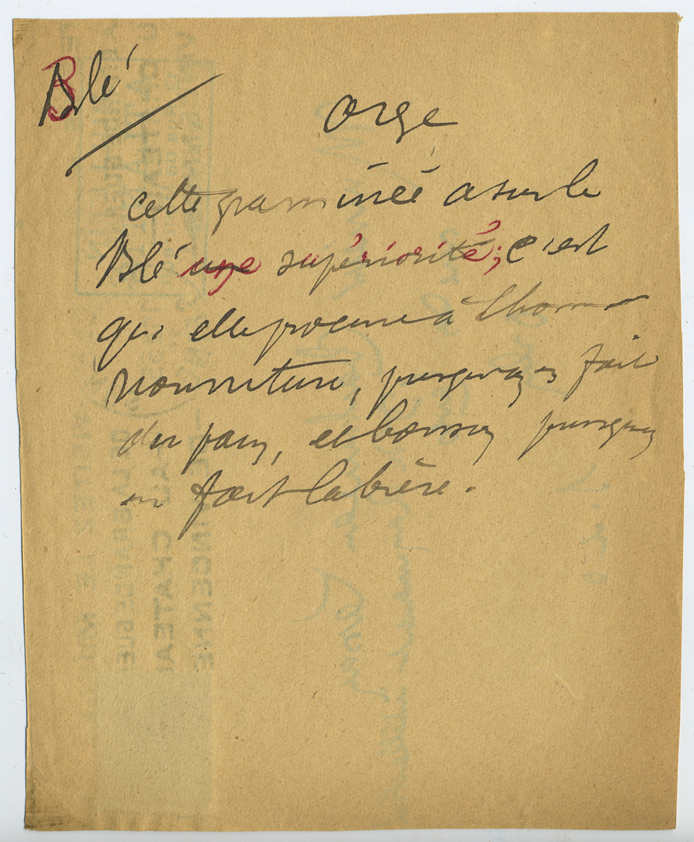 Blé
Orge
cette graminée a sur le
Blé une supériorité ; c'est
qu'elle procure à l'homme
nourriture, puisqu'on en fait
du pain, et boisson puisqu'on
en fait la bière.